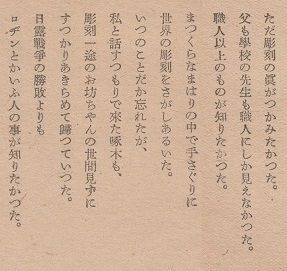 ただ彫刻の眞がつかみたかつた。
父も學校の先生も職人にしか見えなかつた。
職人以上のものが知りたかつた。
まつくらなまはりの中で手さぐりに
世界の彫刻をさがしあるいた。
いつのことだか忘れたが、
私と話すつもりで來た啄木も、
彫刻一途のお坊ちやんの世間見ずに
すつかりあきらめて歸つていつた。
日露戰爭の勝敗よりも
ロヂンとかいふ人の事が知りたかつた。